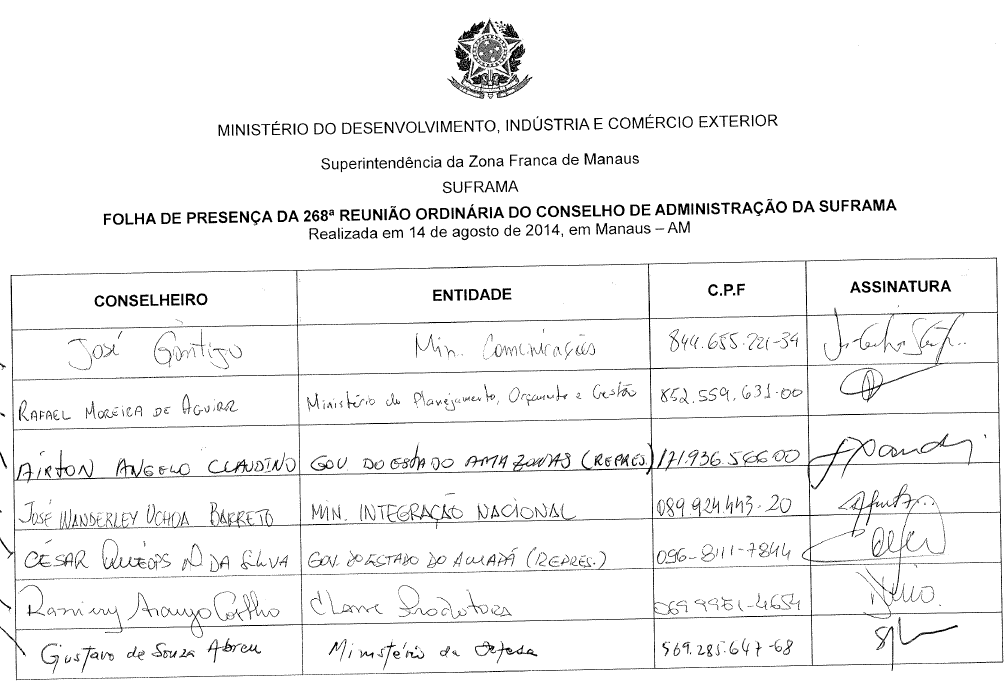 MINISTÉRIO DO DESENVOLVIMENTO, INDÚSTRIA E COMÉRCIO EXTERIOR
Superintendência da Zona Franca de Manaus
SUFRAMA
FOLHA DE PRESENÇA DA 268ª REUNIÃO ORDINÁRIA DO CONSELHO DE ADMINISTRAÇÃO DA SUFRAMA
Realizada em 14 de agosto de 2014, em Manaus – AM
CONSELHEIRO ENTIDADE C.P.F ASSINATURA
José Gontijo Min. Comunicações 844.655.221-34
RAFAEL MOREIRA DE AGUIAR Ministério do Planejamento, Orçamento e Gestão 852.559.631-00
AIRTON ANGELO CLAUDINO GOV DO ESTADO AMAZONAS (REPRES) 171.936.566-00
JOSÉ WANDERLEY UCHOA BARRETO MIN. INTEGRAÇÃO NACIONAL 089.924.443-20
CÉSAR QUÉOPS N DA SILVA GOV. DO ESTADO DO AMAPÁ (REPRES.) 096-8111-7844
Araujo Coelho Classe Produtora
Gustavo de Souza Abreu Ministério da Defesa 569.285.647-68